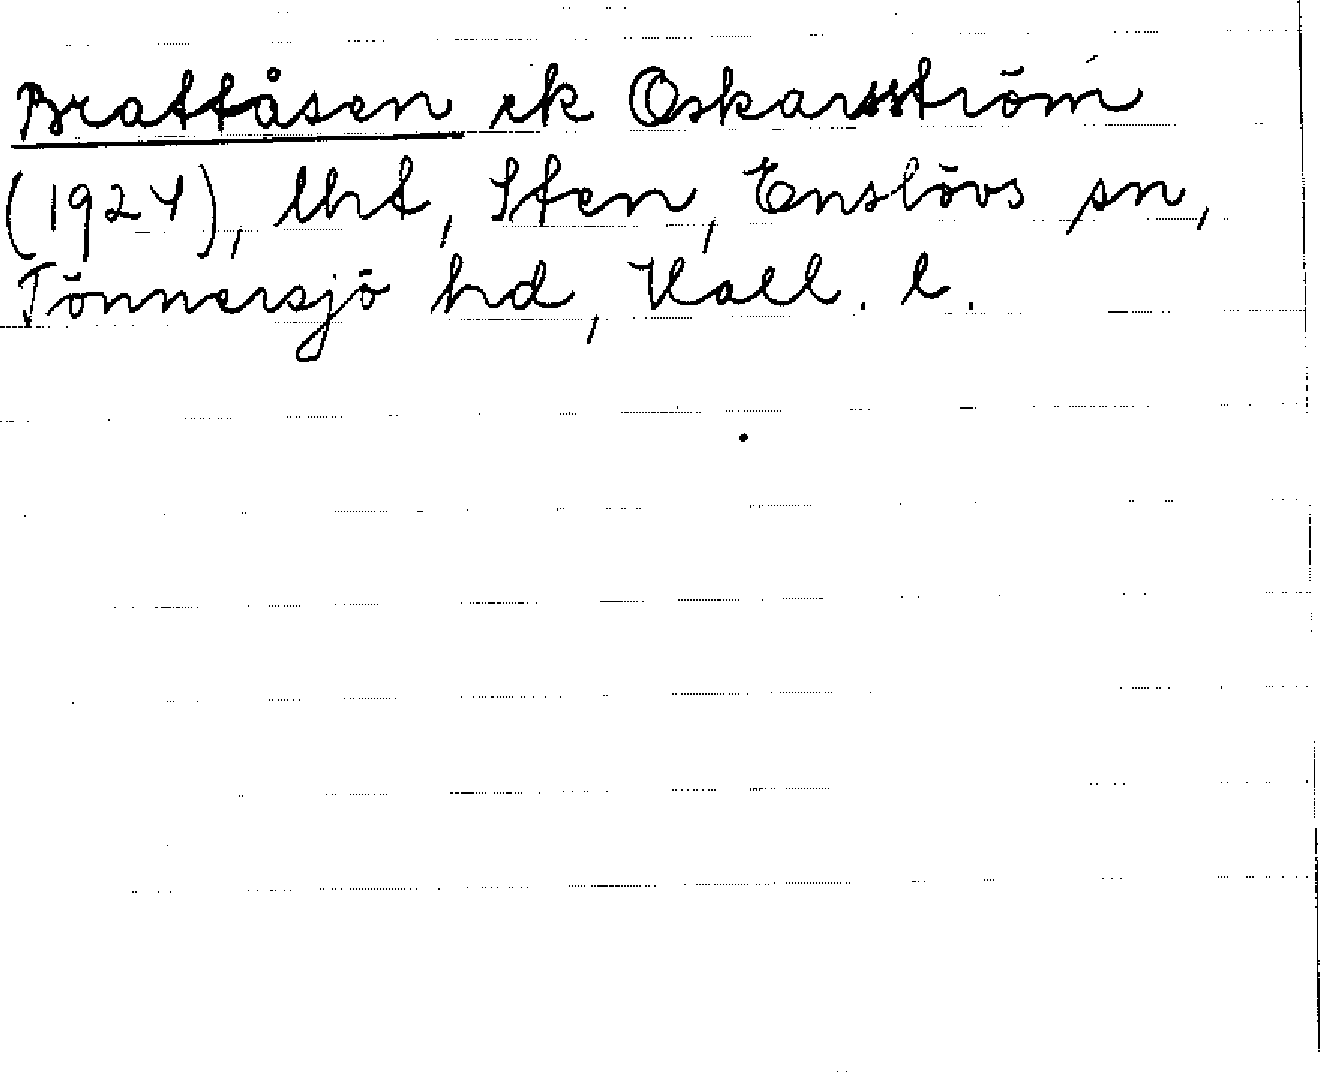 Brattåsen ek Oskarsström
(1924), lht, Sten, Enslövs sn,
Tönnersjö hd, Hall. l.